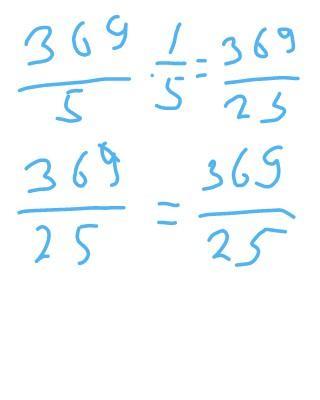 369/5 · 1/5 = 369/25
369/25 = 369/25